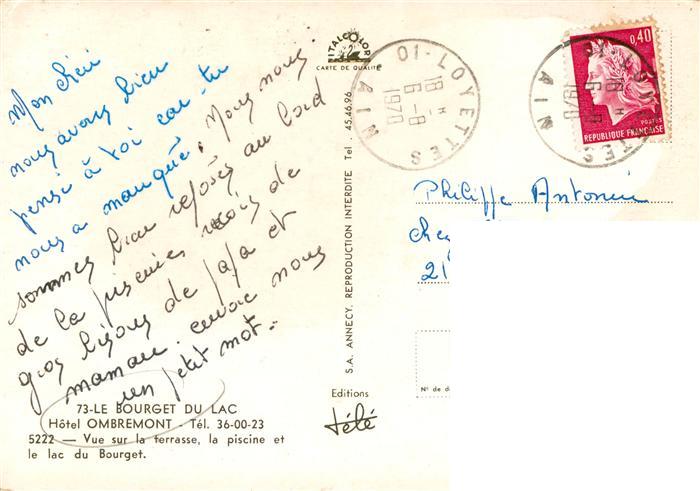 Mon chéri
nous avons bien
pensé à toi car tu
nous a manqué. Nous nous
sommes bien reposés au bord
de la piscine reçois de
gros bisous de papa et
maman. envoie nous
un petit mot.
73-LE BOURGET DU LAC
Hôtel OMBREMONT - Tél. 36-00-23
5222 — Vue sur la terrasse, la piscine et
le lac du Bourget.
ITALCOLOR
CARTE DE QUALITÉ
S.A. ANNECY. REPRODUCTION INTERDITE Tel. 45.46.96
Editions
télé
01-LOYETTES
18 H
6-8
1970
AIN
0,40
POSTES
REPUBLIQUE FRANÇAISE
18 H
6-8
1970
AIN
Philippe Antonin
Che
21
N° de d